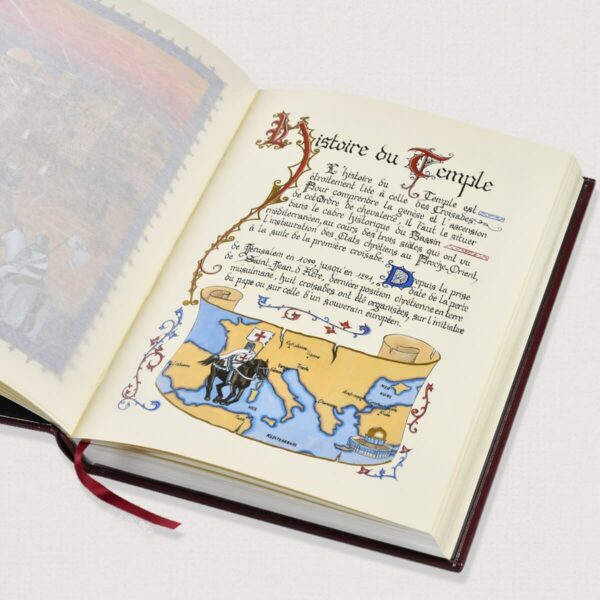 Histoire du Temple
L'histoire du Temple est
étroitement liée à celle des Croisades.
Pour comprendre la genèse et l'ascension
de cet Ordre de chevalerie, il faut le situer
dans le cadre historique du Bassin
méditerranéen, au cours des trois siècles qui ont vu
l'instauration des États chrétiens au Proche-Orient,
à la suite de la première croisade.
Depuis la prise
de Jérusalem en 1099, jusqu'en 1291, date de la perte
de Saint-Jean d'Acre, dernière position chrétienne en terre
musulmane, huit croisades ont été organisées, sur l'initiative
du pape ou sur celle d'un souverain européen.
MER
NOIRE
MER
MEDITERRANEE